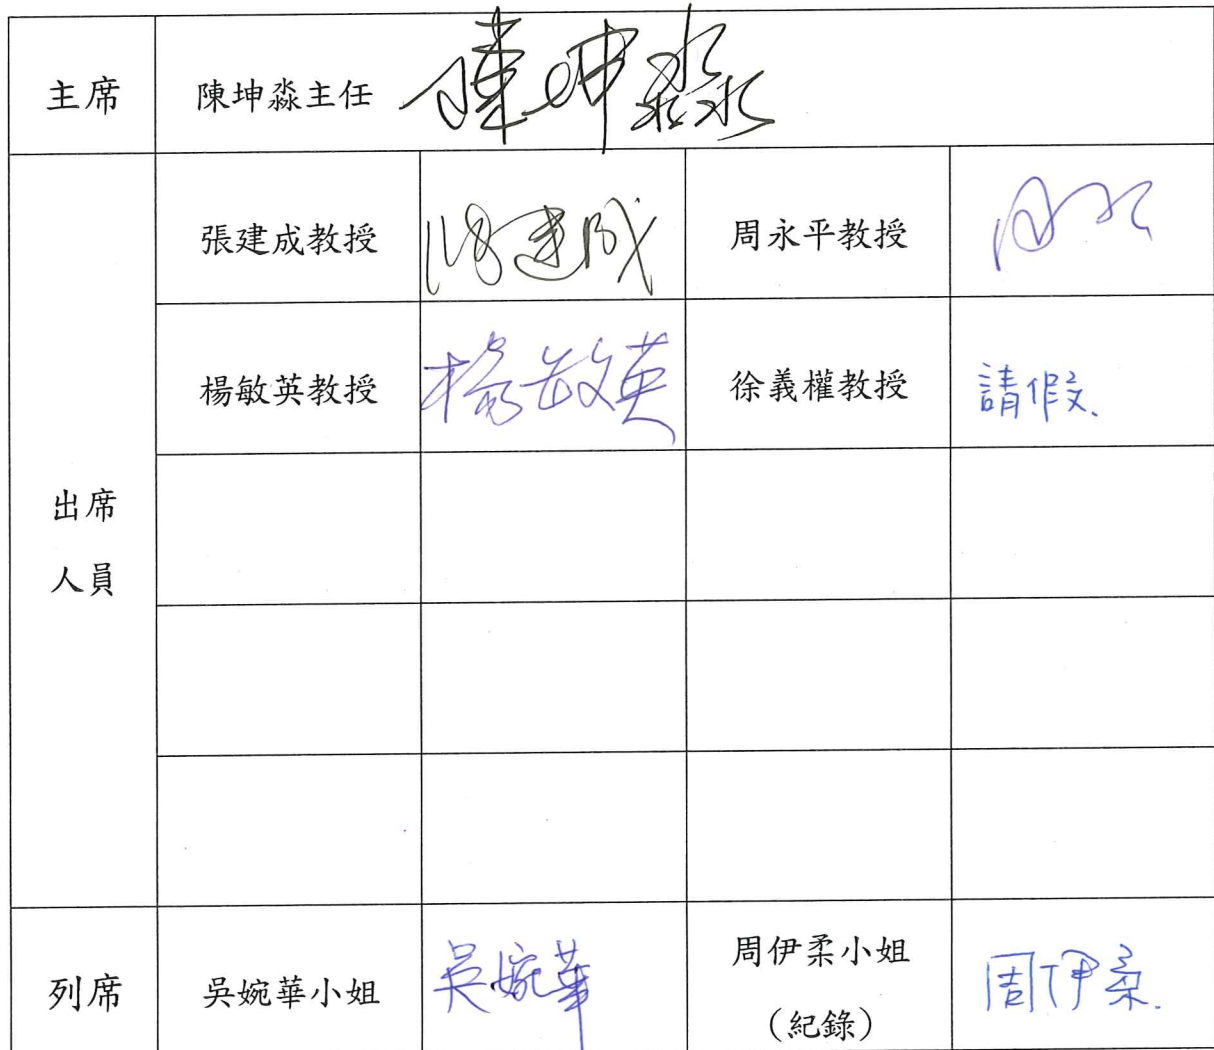 主席 陳坤淼主任 陳坤淼
張建成教授 張建成 周永平教授
楊敏英教授 楊敏英 徐義權教授 請假.
出席
人員
列席 吳婉華小姐 吳婉華 周伊柔小姐 周伊柔.
(紀錄)